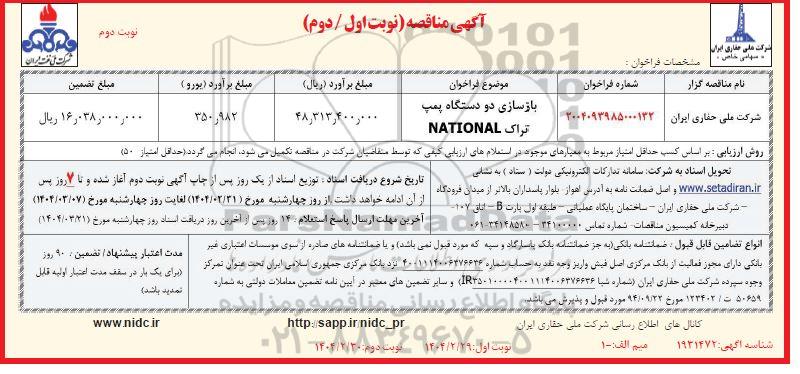 آگهی مناقصه (نوبت اول / دوم)
نوبت دوم
شرکت ملی نفت ایران
شرکت ملی حفاری ایران
« سهامی خاص »
مشخصات فراخوان :
نام مناقصه گزار
شماره فراخوان
موضوع فراخوان
مبلغ برآورد (ریال)
مبلغ برآورد (یورو)
مبلغ تضمین
شرکت ملی حفاری ایران
۲۰۰۴۰۹۳۹۸۵۰۰۰۱۳۲
بازسازی دو دستگاه پمپ تراک NATIONAL
۴۸٫۳۱۳٫۴۰۰٫۰۰۰
۳۵۰٫۹۸۲
۱۶٫۰۳۸٫۰۰۰٫۰۰۰ ریال
روش ارزیابی : بر اساس کسب حداقل امتیاز مربوط به معیارهای موجود در استعلام های ارزیابی کیفی که توسط متقاضیان شرکت در مناقصه تکمیل می شود، انجام می گردد.(حداقل امتیاز ۵۰)
تحویل اسناد به شرکت: سامانه تدارکات الکترونیکی دولت ( ستاد ) به نشانی
www.setadiran.ir و اصل ضمانت نامه به آدرس اهواز- بلوار پاسداران بالاتر از میدان فرودگاه
– شرکت ملی حفاری ایران – ساختمان پایگاه عملیاتی – طبقه اول پارت B – اتاق ۱۰۷-
دبیرخانه کمیسیون مناقصات- شماره تماس ۳۴۱۰۰۰۰۰ – ۳۴۱۴۸۵۸۰-۰۶۱
تاریخ شروع دریافت اسناد : توزیع اسناد از یک روز پس از چاپ آگهی نوبت دوم آغاز شده و تا ۷ روز پس
از آن ادامه خواهد داشت .از روز چهارشنبه مورخ (۱۴۰۴/۰۲/۳۱) لغایت روز چهارشنبه مورخ (۱۴۰۴/۰۳/۰۷)
آخرین مهلت ارسال پاسخ استعلام : ۱۴ روز پس از آخرین روز دریافت اسناد روز چهارشنبه مورخ (۱۴۰۴/۰۳/۲۱)
انواع تضامین قابل قبول : ضمانتنامه بانکی(به جز ضمانتنامه بانک پاسارگاد و سپه که مورد قبول نمی باشد) و یا ضمانتنامه های صادره از سوی موسسات اعتباری غیر
بانکی دارای مجوز فعالیت از بانک مرکزی اصل فیش واریز وجه نقد به حساب شماره ۴۰۰۱۱۱۴۰۰۶۳۷۶۶۳۶ نزد بانک مرکزی جمهوری اسلامی ایران تحت عنوان تمرکز
وجوه سپرده شرکت ملی حفاری ایران (شماره شبا IR۳۵۰۱۰۰۰۰۴۰۰۱۱۱۴۰۰۶۳۷۶۶۳۶) و سایر تضمین های معتبر در آیین نامه تضمین معاملات دولتی به شماره
۱۲۳۴۰۲ / ت ۵۰۶۵۹ ه مورخ ۹۴/۰۹/۲۲ مورد قبول و پذیرش می باشد.
مدت اعتبار پیشنهاد/ تضمین : ۹۰ روز
(برای یک بار در سقف مدت اعتبار اولیه قابل
تمدید باشد)
کانال های اطلاع رسانی شرکت ملی حفاری ایران
http://sapp.ir/nidc_pr
www.nidc.ir
شناسه آگهی: ۱۹۳۱۴۷۲
میم الف: ۱۰-
نوبت اول: ۱۴۰۴/۲/۲۹
نوبت دوم: ۱۴۰۴/۲/۳۰
پایگاه اطلاع رسانی مناقصه و مزایده
۰۲۱-۸۸۳۴۹۶۷۰-۵